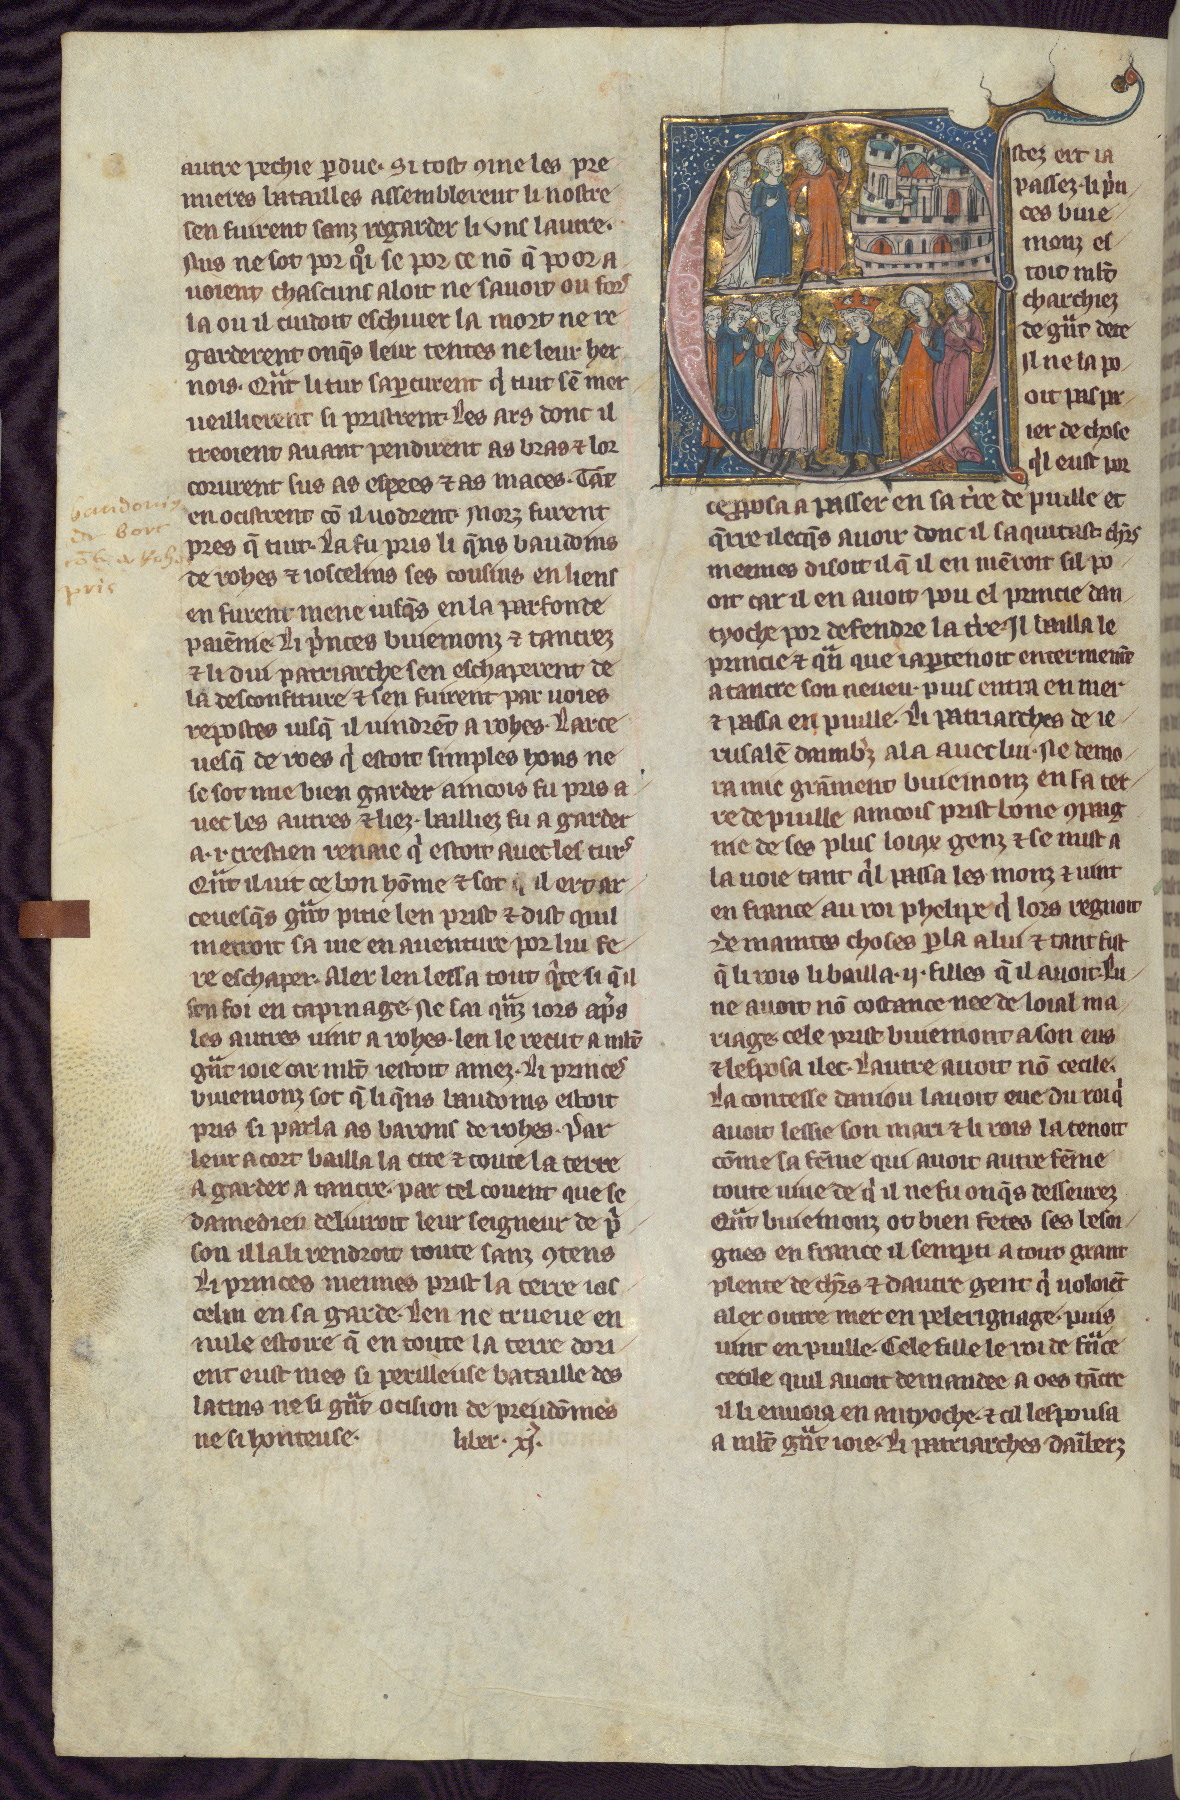 autre pechie ꝑdue. Si tost ꝯme les pre
mieres batailles assemblerent li nostre
sen fuirent sanz regarder li uns lautre.
Nus ne sot por qͦi se por ce nō q̄ poor a
uoient chascuns aloit ne sauoit ou fors
la ou il cuidoit eschiuer la mort ne re
garderent onq̄s leur tentes ne leur her
nois. Qūt li tur saꝑcurent q̍ tuit sē mer
ueillierent si pristrent. Les ars dont il
treoient auant pendirent as bras ⁊ lor
corurent sus as espees ⁊ as maces. Tāt
en ocistrent cō il uodrent. Morz furent
pres q̄ tuit. La fu pris li q̄ns baudoins
de rohes ⁊ ioscelins ses cousins en liens
en furent mene iusq̄s en la parfonde
paiēnie. Li p̍nces buiemonz ⁊ tancrez
⁊ li dui patriarche sen eschaperent de
la desconfiture ⁊ sen fuirent par uoies
repostes iusq̄ il uindrēt a rohes. Larce
uesq̄ de roes q̍ estoit simples hons ne
se sot mie bien garder aincois fu pris a
uec les autres ⁊ liez. bailliez fu a garder
a .i. crestien renaie q̍ estoit auec les turs
Qūt il uit ce bon hōme ⁊ sot q̄ il ert ar
ceuesq̄s gūt pitie len prist ⁊ dist quil
metroit sa uie en auenture por lui fe
re eschaper. Aler len lessa tout q̍te si q̄ il
sen foi en tapinage. Ne sai qūz iors ap̄s
les autres uint a rohes. len le recut a mlt̄
gūt ioie car mlt̄ iestoit amez. Li princes
buiemonz sot q̄ li q̄ns baudoins estoit
pris si parla as barons de rohes. Par
leur acort bailla la cite ⁊ toute la terre
a garder a tancre. par tel couent que se
damedieu deliuroit leur seigneur de p̍
son il la li rendroit toute sanz ꝯtens
Li princes meimes prist la terre ios
celin en sa garde. Len ne trueue en
nule estoire q̄ en toute la terre dori
ent eust mes si perilleuse bataille des
latins ne si gūt ocision de preudōmes
ne si honteuse. liber. xi.
baudouin
de borc
pris
stez ert ia
passez. li p̍n
ces buie
monz es
toit mlt̄
charchiez
de gūt dete
Il ne la po
oit pas pa
ier de chose
q̍l eust por
ce ꝓposa a passer en sa t̍re de puille et
q̄rre ilecq̄s auoir donc il saquitast. chr̄s
meemes disoit il q̄ il en mēroit sil po
oit car il en auoit pou el princie dan
tyoche por defendre la t̍re. Il bailla le
princie ⁊ qūt que iaꝑtenoit enterinemēt
a tancre son neueu. puis entra en mer
⁊ passa en puille. Li patriarches de ie
rusalē daimbz ala auec lui. Ne demo
ra mie grāment buiemonz en sa ter
re de puille aincois prist bone ꝯpaig
nie de ses plus loiax genz ⁊ se mist a
la uoie tant q̍l passa les monz ⁊ uint
en france au roi phelipe q̍ lors regnoit
De maintes choses ꝑla a lui ⁊ tant fist
q̄ li rois li bailla .ii. filles q̄ il auoit. Lu
ne auoit nō costance nee de loial ma
riage. cele prist buiemont a son eus
⁊ lesposa ilec. Lautre auoit nō cecile.
La contesse daniou lauoit eue du roi q̍
auoit lessie son mari ⁊ li rois la tenoit
cōme sa fēme qui auoit autre fēme
toute uiue de q̍ il ne fu onq̄s desseurez
Qūt buiemonz ot bien fetes ses besoi
gnes en france il semꝑti a tout grant
plente de chr̄s ⁊ dautre gent q̍ uoloiēt
aler outre mer en pelerignage. puis
uint en puille. Cele fille le roi de frāce
cecile quil auoit demandee a oes tācre
il li enuoia en antyoche. ⁊ cil lespousa
a mlt̄ gūt ioie. Li patriarches daībetz